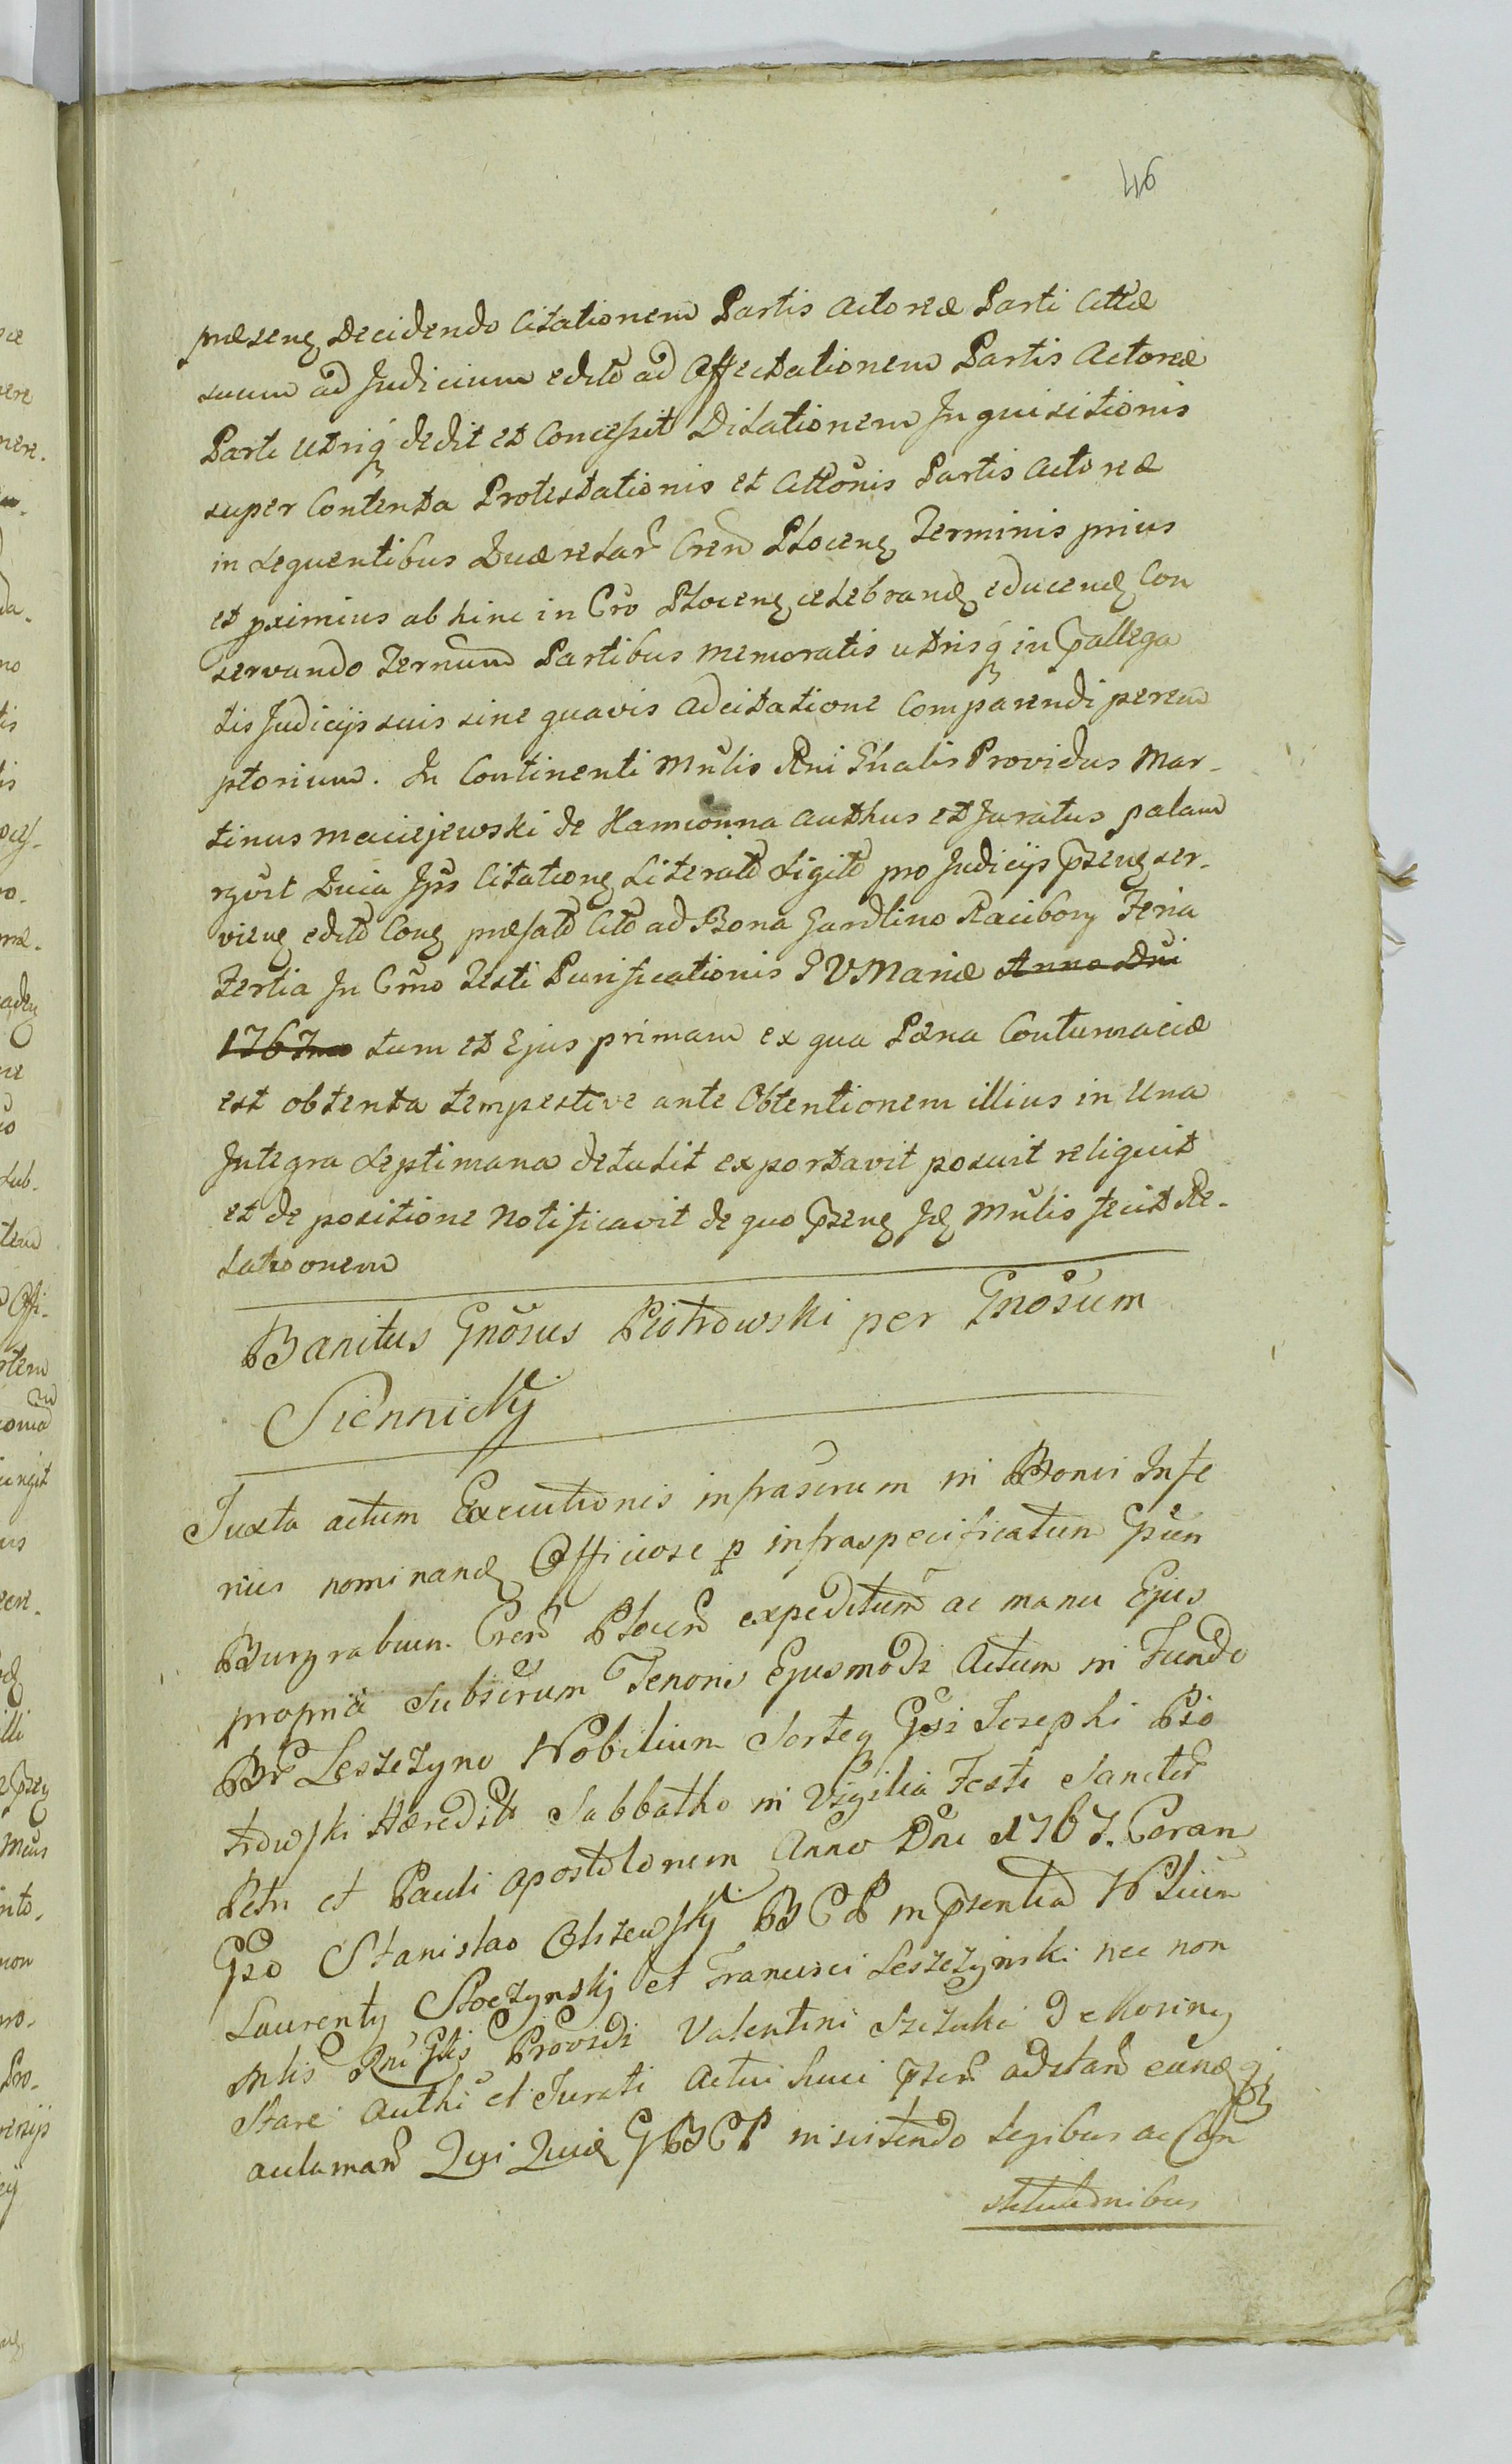 46
præsens Decidendo Citationem Partis Actoreæ Parti Cittæ
suum ad Judicium editã ad Affectationem Partis Actoreæ
Parti Utriq dedit et Concessit Dilationem Inquisitionis
super Contenta Protestationis et Cittõnis Partis Actoreæ
in sequentibus Querelar Cren Plocen Terminis prius
et pximius ab hinc in Cro Plocen celebrand educend Con
servando Ternum Partibus memoratis utrisq in pallega
tis Judicijs suis sine quavis Adcitatione Comparendi perem
ptorium. In Continenti Mnlis Rni Gnalis Providus Mar-
tinus Maciejewski de Kamionna Authus et Juratus palam
rgvit Quia Jps Citationes Literatã Sigitã pro Judicijs pzens ser-
viens editã Cong præfatã Citã ad Bona Gardlino Racibory Feria
Tertia In Crño Festi Purificationis B V Mariæ Anno Dni
1767mo tum et Ejus primam ex qua Pæna Contumaciæ
est obtenta tempestive ante Obtentionem illius in Una
Integra Septimana detulit exportavit posuit reliquit
et de positione Notificavit de quo pzens Jd Mnlis fecit Re-
lationem
Banitus Gnosus Piotrowski per Gnosum
Siennicky
Juxta actum Executionis infrascrum in Bonis Infe
rius nominand Officiose p infraspecificatum Gsum
Burgrabium Cren Plocen expeditum ac manu Ejus
propria subscrum Tenoris Ejusmodi Actum in Fundo
Br Leszczyno Nobilium Sortey Gsi Josephi Pio
trowski Hæredits Sabbatho in Vigilia Festi Sanctor
Petri et Pauli Apostolorum Anno Dni 1767. Coram
Gso Stanislao Olszewsky B C P in pzentia Nlium
Laurenty Stoczynsky et Francisci Leszczynski nec non
Mnlis Rni Glis Providi Valentini Szczuki de Kosiny
Stare Authi et Jurati Actui huic pzen adstan eandq
aulaman Qui Quid G B C P insistendo legibus ac Con
stitutionibus